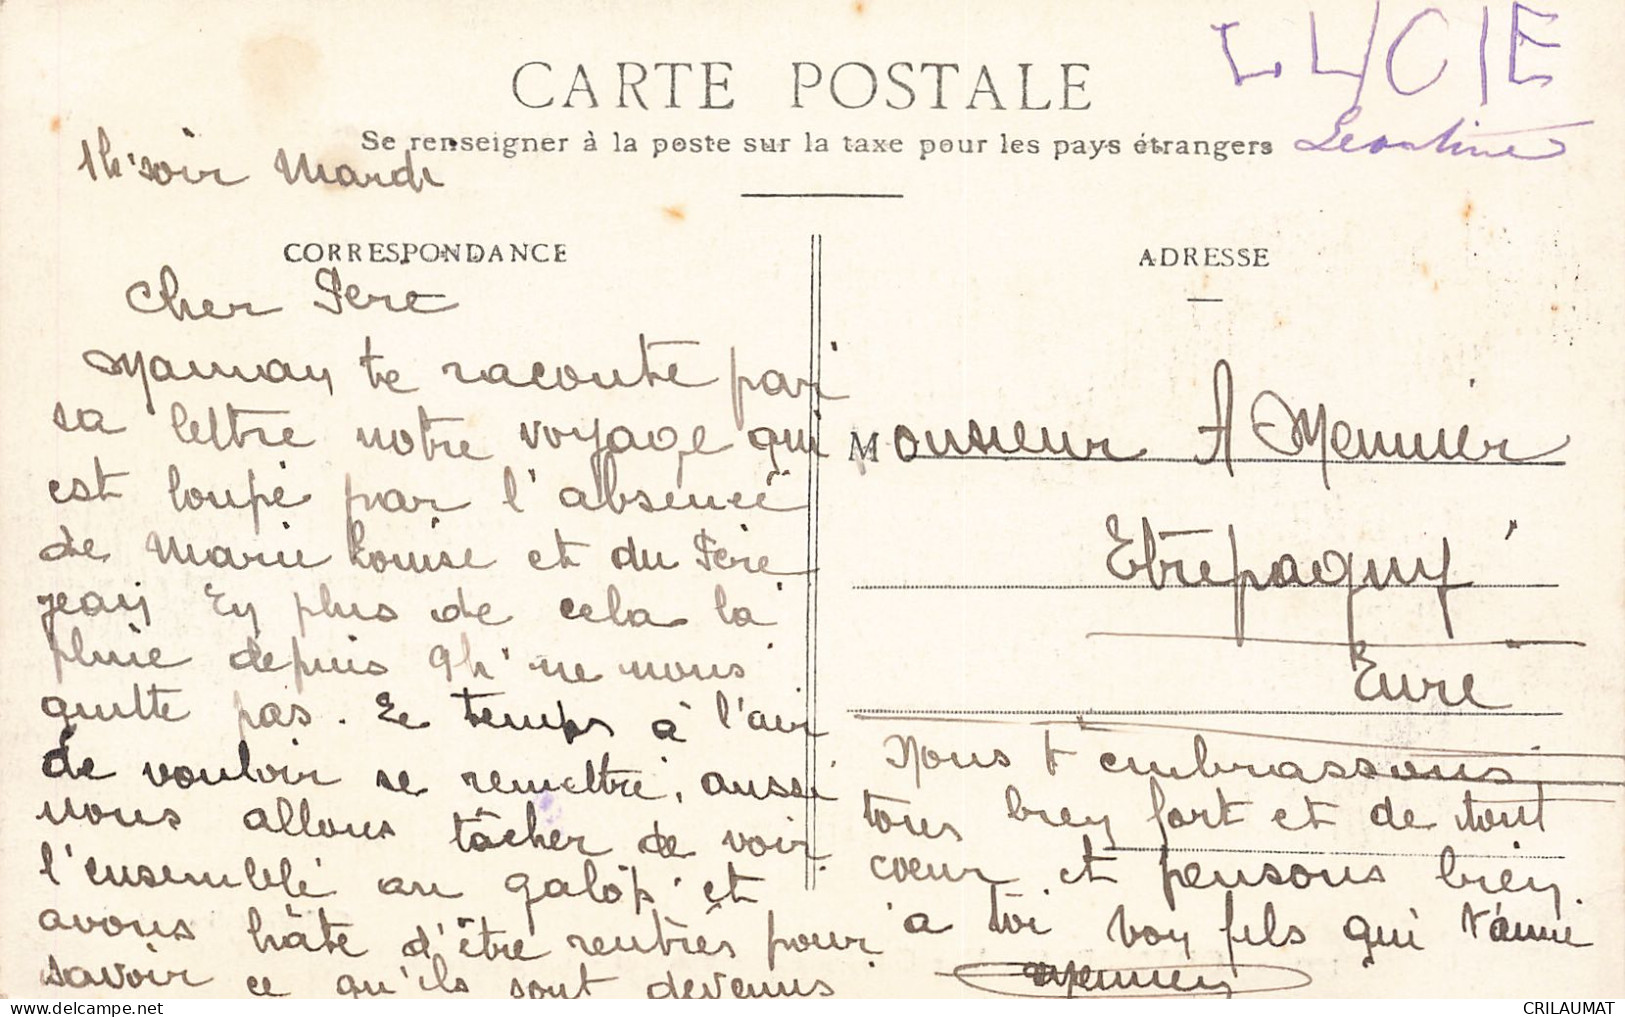 LUCIE
CARTE POSTALE
Se renseigner à la poste sur la taxe pour les pays étrangers
Leontine
1h soir Mardi
CORRESPONDANCE
Cher Père
Maman te raconte par
sa lettre notre voyage qui
est loupé par l'absence
de Marie Louise et du Père
jean En plus de cela la
pluie depuis 9h ne nous
quitte pas. Le temps à l'air
de vouloir se remettre, aussi
nous allons tâcher de voir
l'ensemble au galop et
avons hâte d'être rentrés pour
savoir ce qu'ils sont devenus
ADRESSE
Monsieur A Meunier
Etrepagny
Eure
Nous t'embrassons
tous bien fort et de tout
coeur et pensons bien
a toi Ton fils qui t'aime
Meunier
CRILAUMAT